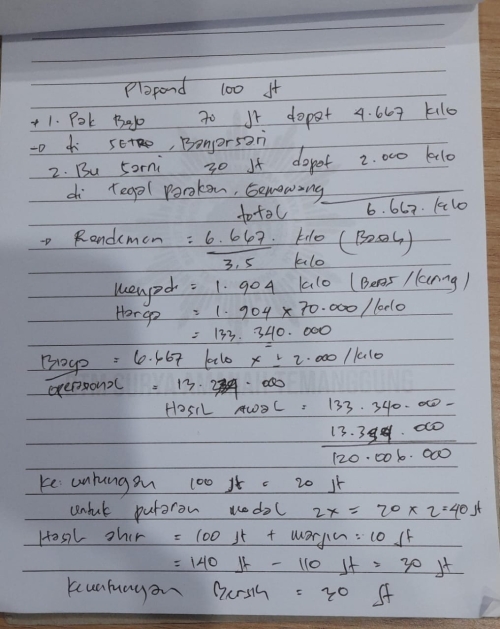 Plapond 100 Jt
→ 1. Pak Bajo 70 Jt dapat 4.667 kilo
→ di SETRO, Banjarsari
2. Bu Sarni 30 Jt dapat 2.000 kilo
di Tegal Parakan, Gemawang
total 6.667. kilo
→ Randemen = 6.667. kilo (Basah)
3,5 kilo
Menjadi = 1.904 kilo (Beras / kering)
Harga = 1.904 x 70.000 / kilo
= 133.340.000
Biaya = 6.667 kilo x 2.000 / kilo
operasional = 13. .000
Hasil awal = 133.340.000 -
13. .000
120.006.000
Keuntungan 100 Jt = 20 Jt
untuk putaran modal 2x = 20 x 2 = 40 Jt
Hasil ahir = 100 Jt + margin = 10 Jt
= 140 Jt - 110 Jt = 30 Jt
Keuntungan Bersih = 30 Jt